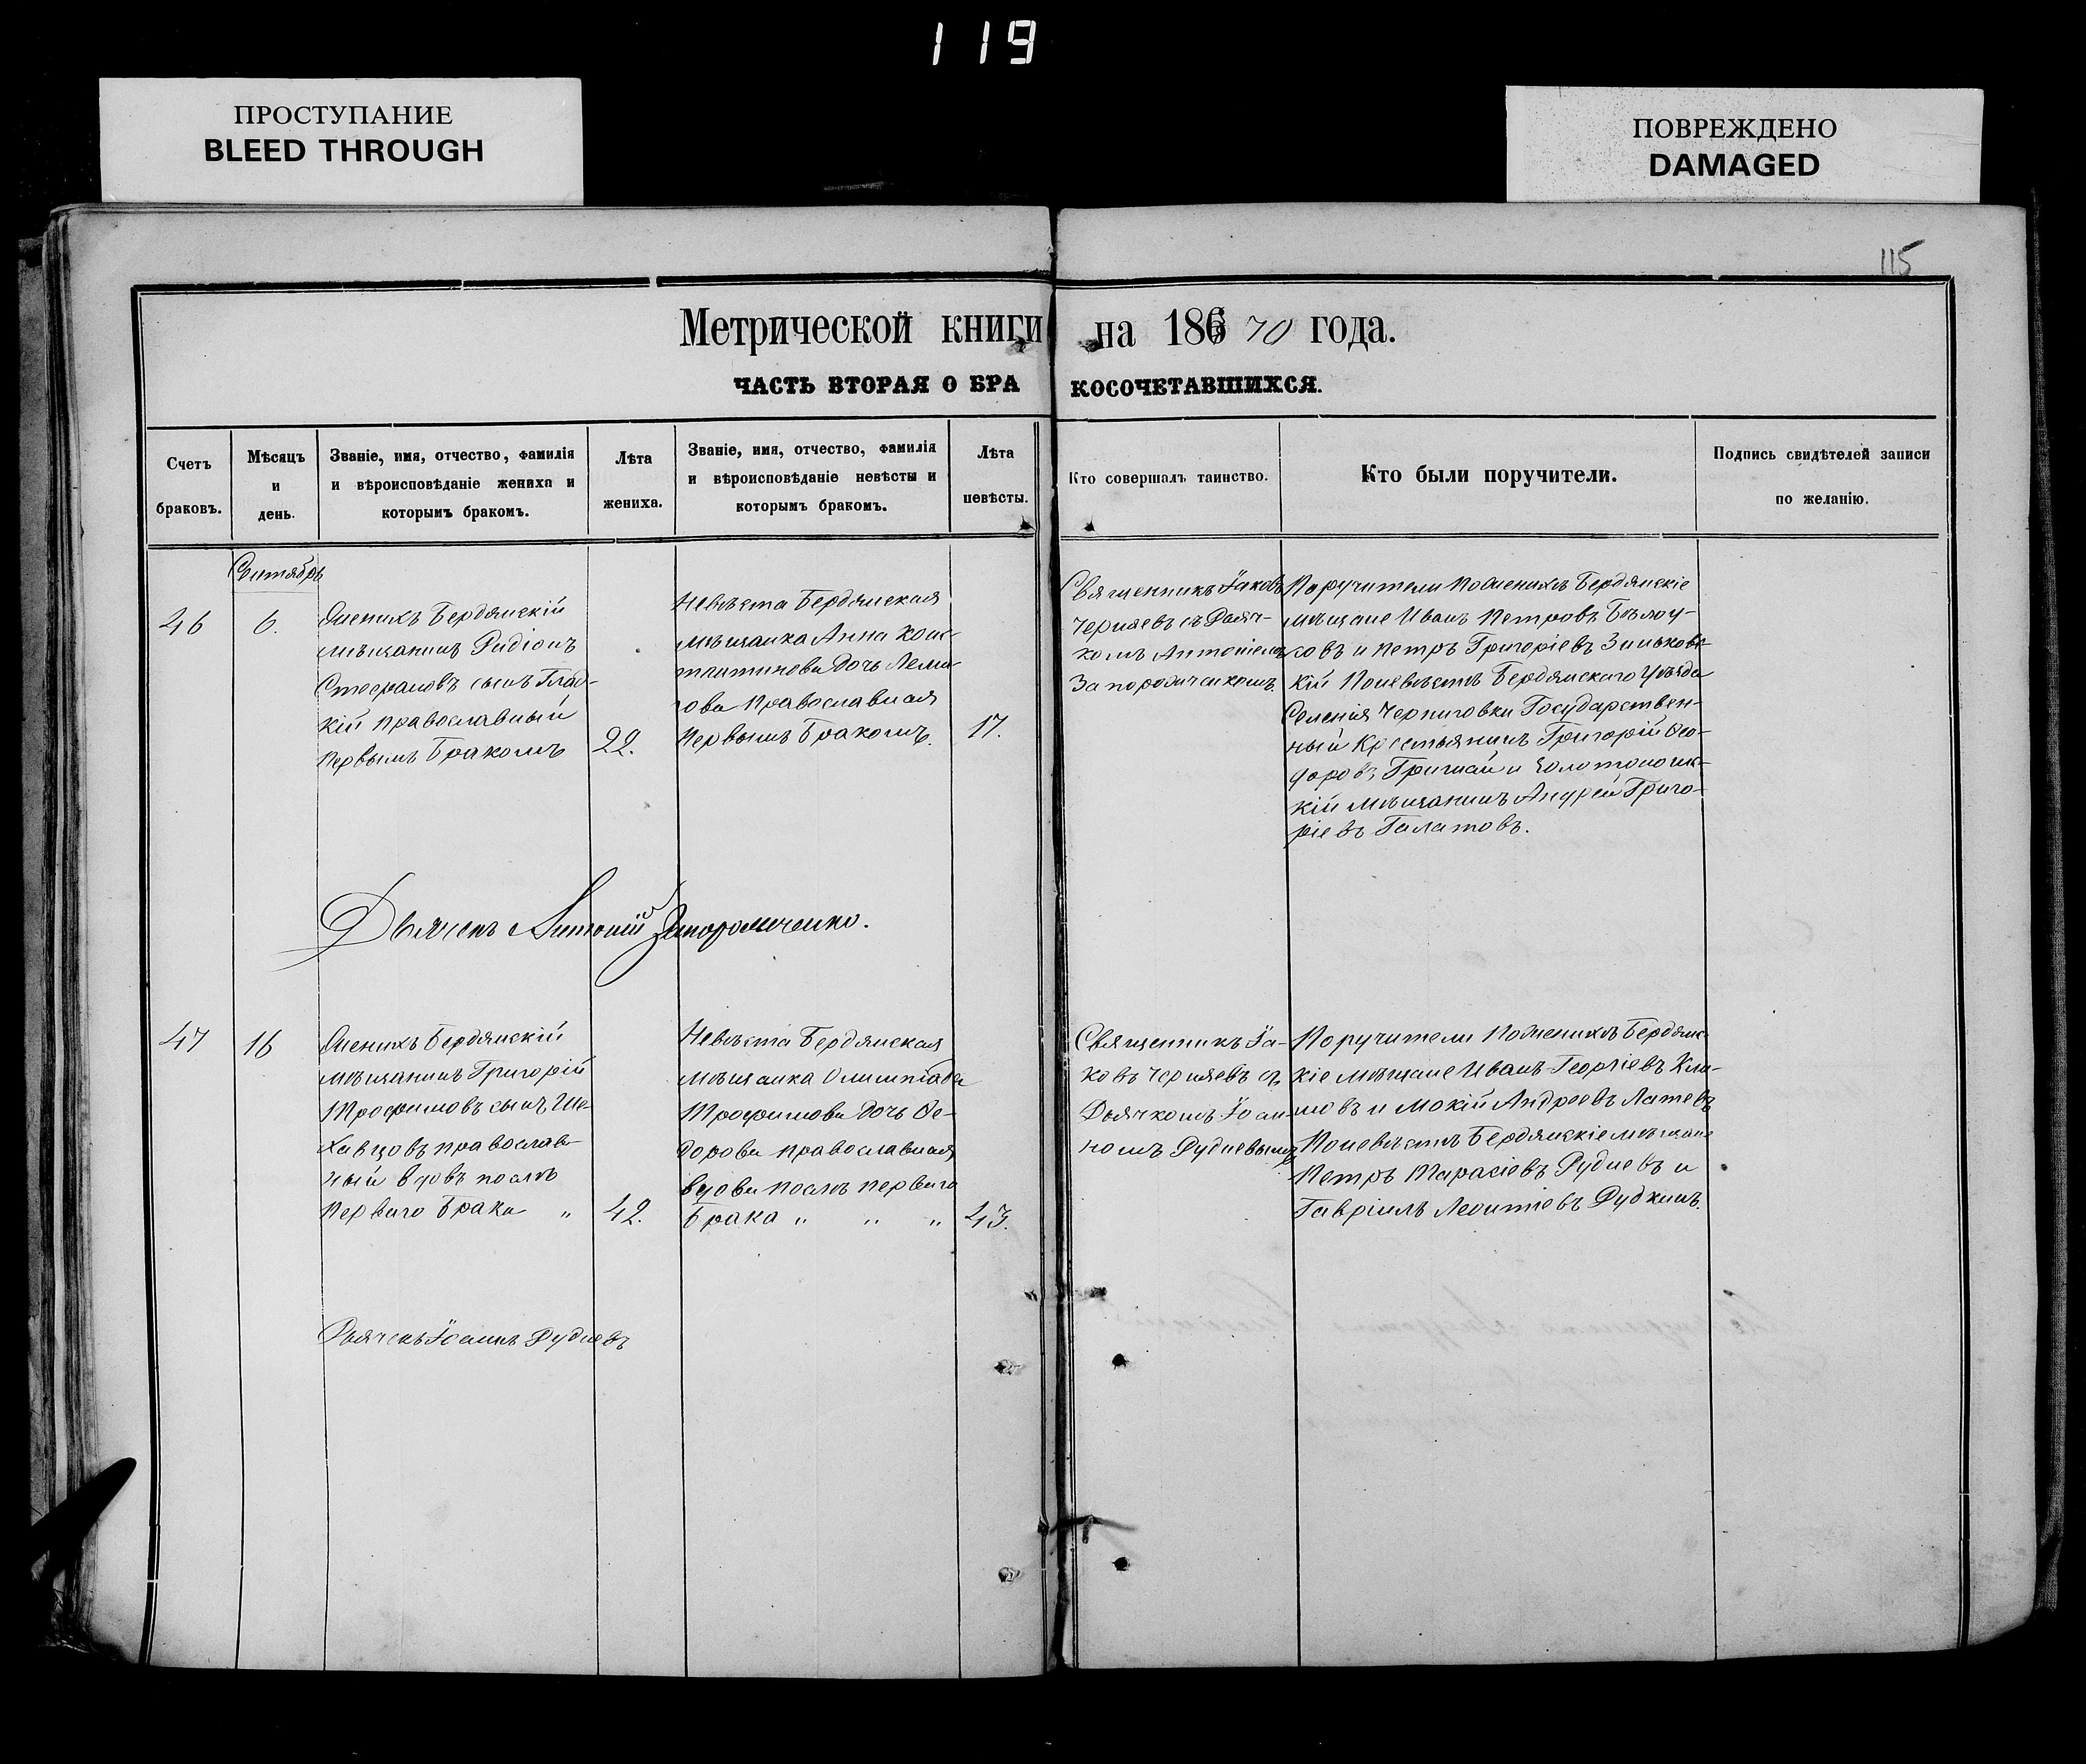 119
ПРОСТУПАНИЕ
BLEED THROUGH
ПОВРЕЖДЕНО
DAMAGED
115
Метрической книги на 186 70 года.
ЧАСТЬ ВТОРАЯ О БРАКОСОЧЕТАВШИХСЯ.
Счетъ
браковъ.
Мѣсяцъ
и
день.
Званіе, имя, отчество, фамилія
и вѣроисповѣданіе жениха и
которымъ бракомъ.
Лѣта
жениха.
Званіе, имя, отчество, фамилія
и вѣроисповѣданіе невѣсты и
которымъ бракомъ.
Лѣта
невѣсты.
Кто совершалъ таинство.
Кто были поручители.
Подпись свидѣтелей записи
по желанію.
Сентябрь
46
6.
Женихъ Бердянскій
мѣщанинъ Родіонъ
Стефановъ сынъ Глад-
кій православный
первымъ бракомъ
22.
Невѣста Бердянская
мѣщанка Анна Конс-
тантинова дочь
православная
первымъ бракомъ.
17.
Священникъ Іаковъ
Черняевъ съ Дьяч-
комъ Антоніемъ
Запорожченкомъ.
Поручители по женихѣ Бердянскіе
мѣщане Иванъ Петровъ Бѣлоу-
совъ и Петръ Григоріевъ Зиньковс-
кій по невѣстѣ Бердянскаго Уѣзда
Селенія Черниговки Государствен-
ный Крестьянинъ Григорій Ѳео-
доровъ и Золотоношс-
кій мѣщанинъ Андрей Григо-
ріевъ Галатовъ.
Дьячекъ Антоній Запорожченко.
47
16
Женихъ Бердянскій
мѣщанинъ Григорій
Трофимовъ сынъ Ше-
ховцовъ православ-
ный вдовъ послѣ
перваго брака „
42.
Невѣста Бердянская
мѣщанка Олимпіада
Трофимова дочь Ѳе-
дорова православная
вдова послѣ перваго
брака „ „ „
43.
Священникъ Іа-
ковъ Черняевъ съ
Дьячкомъ Іоан-
номъ Рудневымъ
Поручители по женихѣ Бердянс-
кіе мѣщане Иванъ Георгіевъ Кли-
мовъ и Мокій Андреевъ Латевъ
По невѣстѣ Бердянскіе мѣщане
Петръ Тарасіевъ Рудневъ и
Гавріилъ Леонтіевъ Рудкинъ.
Дьячекъ Іоаннъ Рудневъ